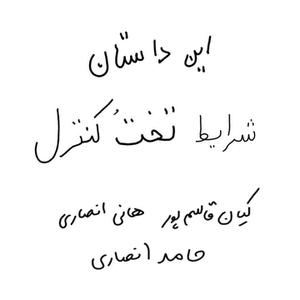 این داستان
شرایط تختُ کنترل
کیان قاسم پور هانی انصاری
حامد انصاری